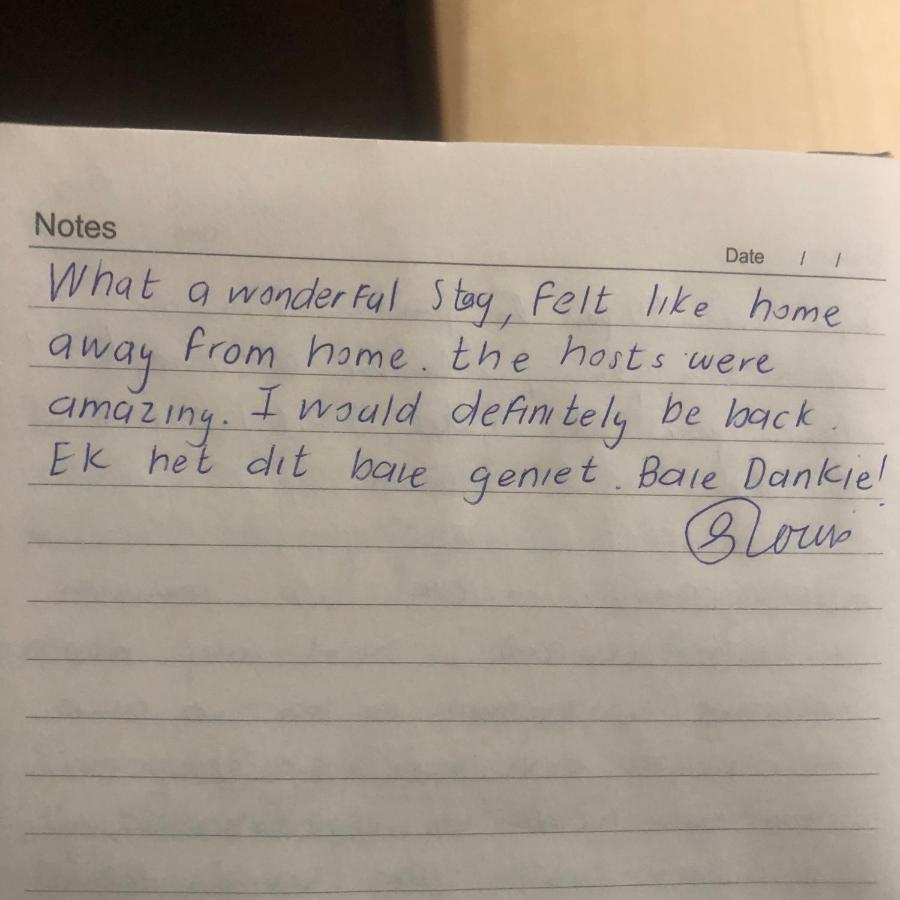 Notes
Date / /
What a wonderful stay, felt like home
away from home. the hosts were
amazing. I would definitely be back.
Ek het dit baie geniet. Baie Dankie!